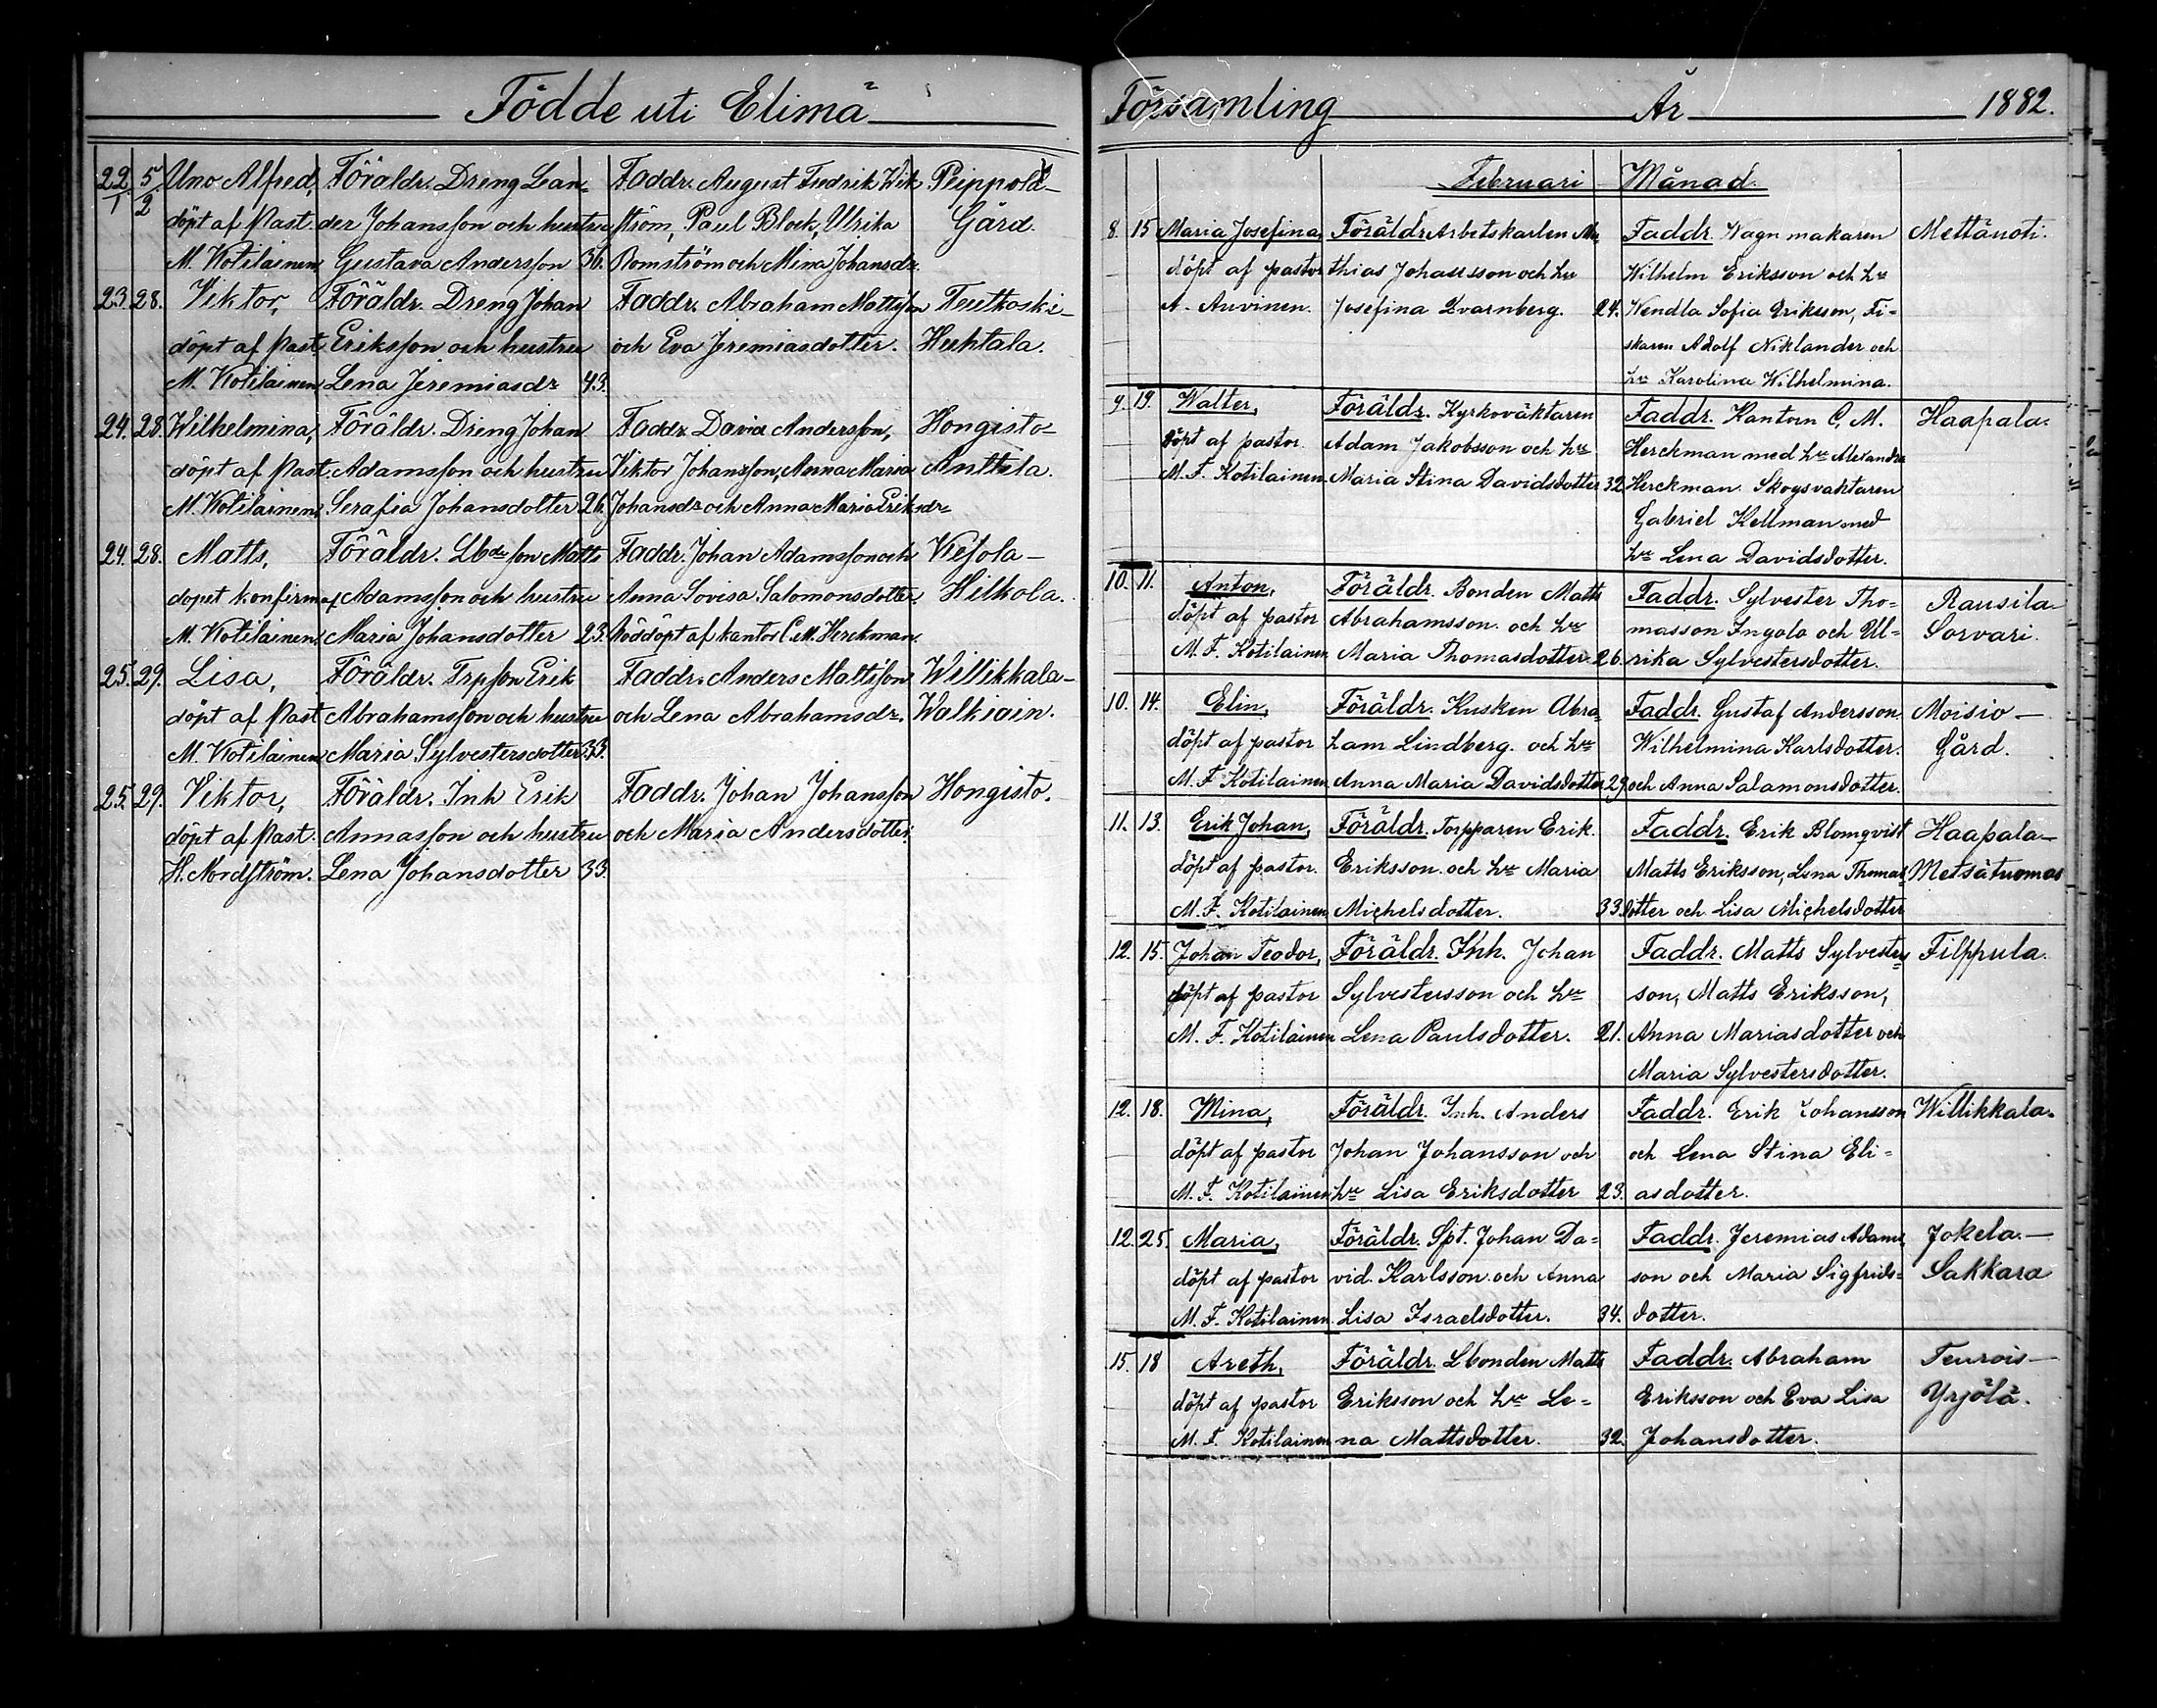 Födde uti Elimä
22/1 5/2 Uno Alfred, Föräldr. Dreng Lean= Faddr. August Fredrik Wik Peippola
döpt af Past. der Johansson och hustru ström, Paul Block, Ulrika Gård.
M. Kotilainen, Gustava Andersson 36. Romström och Mina Johansdr.
23. 28. Viktor, Föräldr. Dreng Johan Faddr. Abraham Mattsson Teutkoski-
döpt af Past. Eriksson och hustru och Eva Jeremiasdotter. Huhtala.
M. Kotilainen, Lena Jeremiasdr 43.
24. 28. Wilhelmina, Föräldr. Dreng Johan Faddr. David Andersson, Hongisto-
döpt af Past. Adamsson och hustru Viktor Johansson, Anna Maria Anttila.
M. Kotilainen, Serafia Johansdotter 26. Johansdr och Anna Maria Eriksdr
24. 28. Matts, Föräldr. Lbde son Matts Faddr. Johan Adamsson och Kesola-
dopet konfirm. af Adamsson och hustru Anna Lovisa Salomonsdotter. Hilkola.
M. Kotilainen, Maria Johansdotter 23. Nöddöpt af kantor C. M. Herckman.
25. 29. Lisa, Föräldr. Trpson Erik Faddr. Anders Mattsson Willikkala-
döpt af Past. Abrahamsson och hustru och Lena Abrahamsdr. Walkiain.
M. Kotilainen, Maria Sylvestersdotter 33.
25. 29. Viktor, Föräldr. Inh Erik Faddr. Johan Johansson Hongisto.
döpt af Past. Annasson och hustru och Maria Andersdotter.
H. Nordström. Lena Johansdotter 33.
Församling År 1882.
Februari Månad.
8. 15 Maria Josefina, Föräldr. Arbetskarlen Ma Faddr. Wagn makaren Mettänoti.
döpt af pastor thias Johansson och hru Wilhelm Eriksson och hru
A. Auvinen. Josefina Qvarnberg. 24. Wendla Sofia Eriksson, Fi-
skaren Adolf Niklander och
hru Karolina Wilhelmina.
9. 19. Walter, Föräldr. Kyrkoväktaren Faddr. Kantorn C. M. Haapala.
döpt af pastor Adam Jakobsson och hru Herckman med hru Alexandra
M. F. Kotilainen. Maria Stina Davidsdotter 32 Herckman. Skogsvaktaren
Gabriel Kellman med
hru Lena Davidsdotter.
10. 11. Anton, Föräldr. Bonden Matts Faddr. Sylvester Tho= Rausila-
döpt af pastor Abrahamsson och hru masson Ingala och Ul= Sorvari.
M. F. Kotilainen Maria Thomasdotter. 26. rika Sylvestersdotter.
10. 14. Elin, Föräldr. Kusken Abra Faddr. Gustaf Andersson Moisio-
döpt af pastor ham Lindberg. och hru Wilhelmina Karlsdotter. Gård.
M. F. Kotilainen Anna Maria Davidsdotter 29. och Anna Salamonsdotter.
11. 13. Erik Johan, Föräldr. Torpparen Erik Faddr. Erik Blomqvist Haapala-
döpt af pastor Eriksson och hru Maria Matts Eriksson, Lena Thomas= Metsätuomas
M. F. Kotilainen Michelsdotter. 33. dotter och Lisa Michelsdotter
12. 15. Johan Teodor, Föräldr. Inh. Johan Faddr. Matts Sylvesters= Filppula.
döpt af pastor Sylvestersson och hru son, Matts Eriksson,
M. F. Kotilainen Lena Paulsdotter. 21. Anna Mariasdotter och
Maria Sylvestersdotter.
12. 18. Mina, Föräldr. Inh. Anders Faddr. Erik Johansson Willikkala.
döpt af pastor Johan Johansson och och Lena Stina Eli=
M. F. Kotilainen hru Lisa Eriksdotter 23. asdotter.
12. 25. Maria, Föräldr. Spt. Johan Da= Faddr. Jeremias Adams Jokela.-
döpt af pastor vid Karlsson och Anna son och Maria Sigfrids= Sakkara
M. F. Kotilainen. Lisa Israelsdotter. 34. dotter.
15. 18 Areth, Föräldr. Lbonden Matts Faddr. Abraham Teurois-
döpt af pastor Eriksson och hru Le= Eriksson och Eva Lisa Yrjölä.
M. F. Kotilainen na Mattsdotter. 32. Johansdotter.